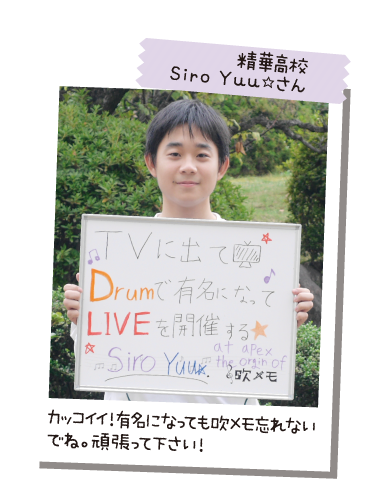 精華高校
Siro Yuu☆さん
TVに出て
Drumで有名になって
LIVEを開催する★
at apex
Siro Yuu★. the orgin of
吹メモ
カッコイイ!有名になっても吹メモ忘れない
でね。頑張って下さい!